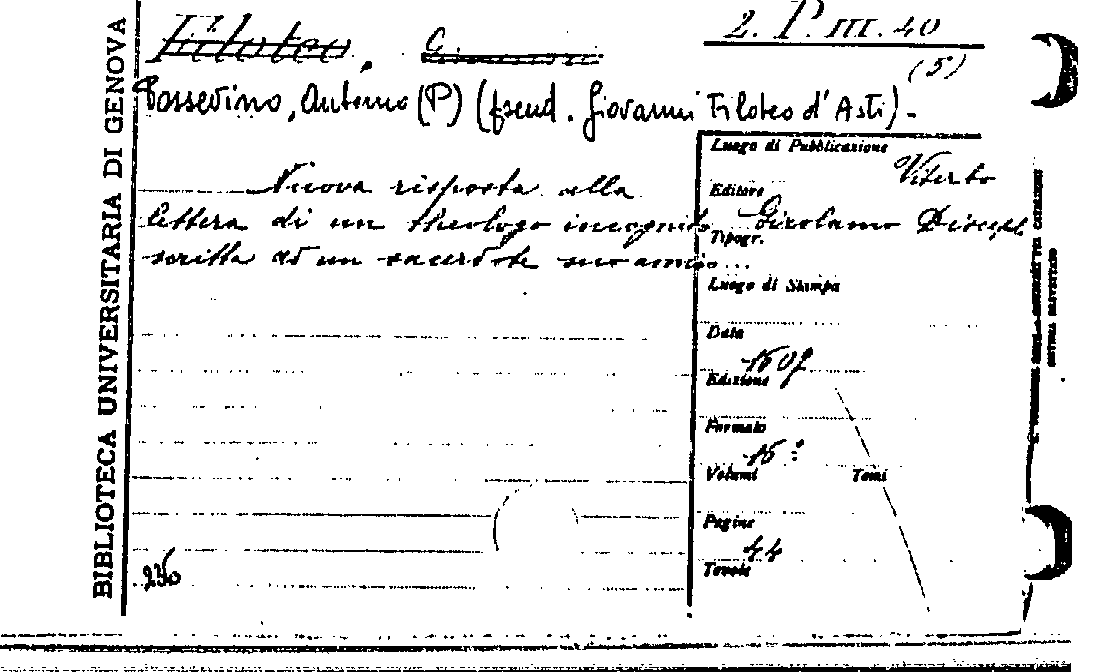 BIBLIOTECA UNIVERSITARIA DI GENOVA
Filoteo, G.
2. P. III. 40
(5)
Possevino, Antonio (P) (pseud. Giovanni Filoteo d'Asti).-
Nuova risposta alla
lettera di un theologo incognito
scritta ad un sacerdote suo amico...
Luogo di Pubblicazione
Viterbo
Editore
Girolamo Discep.
Tipogr.
Luogo di Stampa
Data
1607
Edizione
Formato
16°:
Volumi Tomi
Pagine
44
Tavole